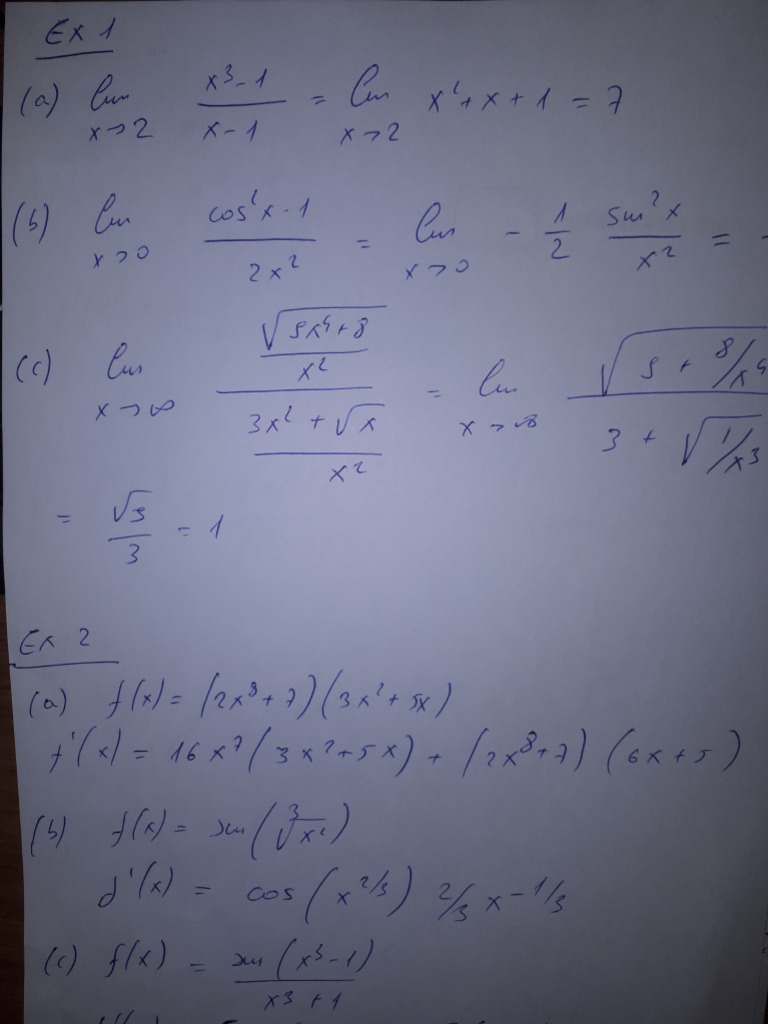 Ex 1
(a) lim x→2 (x³-1)/(x-1) = lim x→2 x²+x+1 = 7
(b) lim x→0 (cos²x-1)/(2x²) = lim x→0 - 1/2 sin²x/x² = -
(c) lim x→∞ (√(9x⁴+8)/x²)/((3x²+√x)/x²) = lim x→∞ √(9+8/x⁴)/(3+√(1/x³))
= √9/3 = 1
Ex 2
(a) f(x) = (2x⁸+7)(3x²+5x)
f'(x) = 16x⁷(3x²+5x) + (2x⁸+7)(6x+5)
(b) f(x) = sin(∛x²)
f'(x) = cos(x^2/3) 2/3 x^-1/3
(c) f(x) = sin(x³-1)/(x³+1)